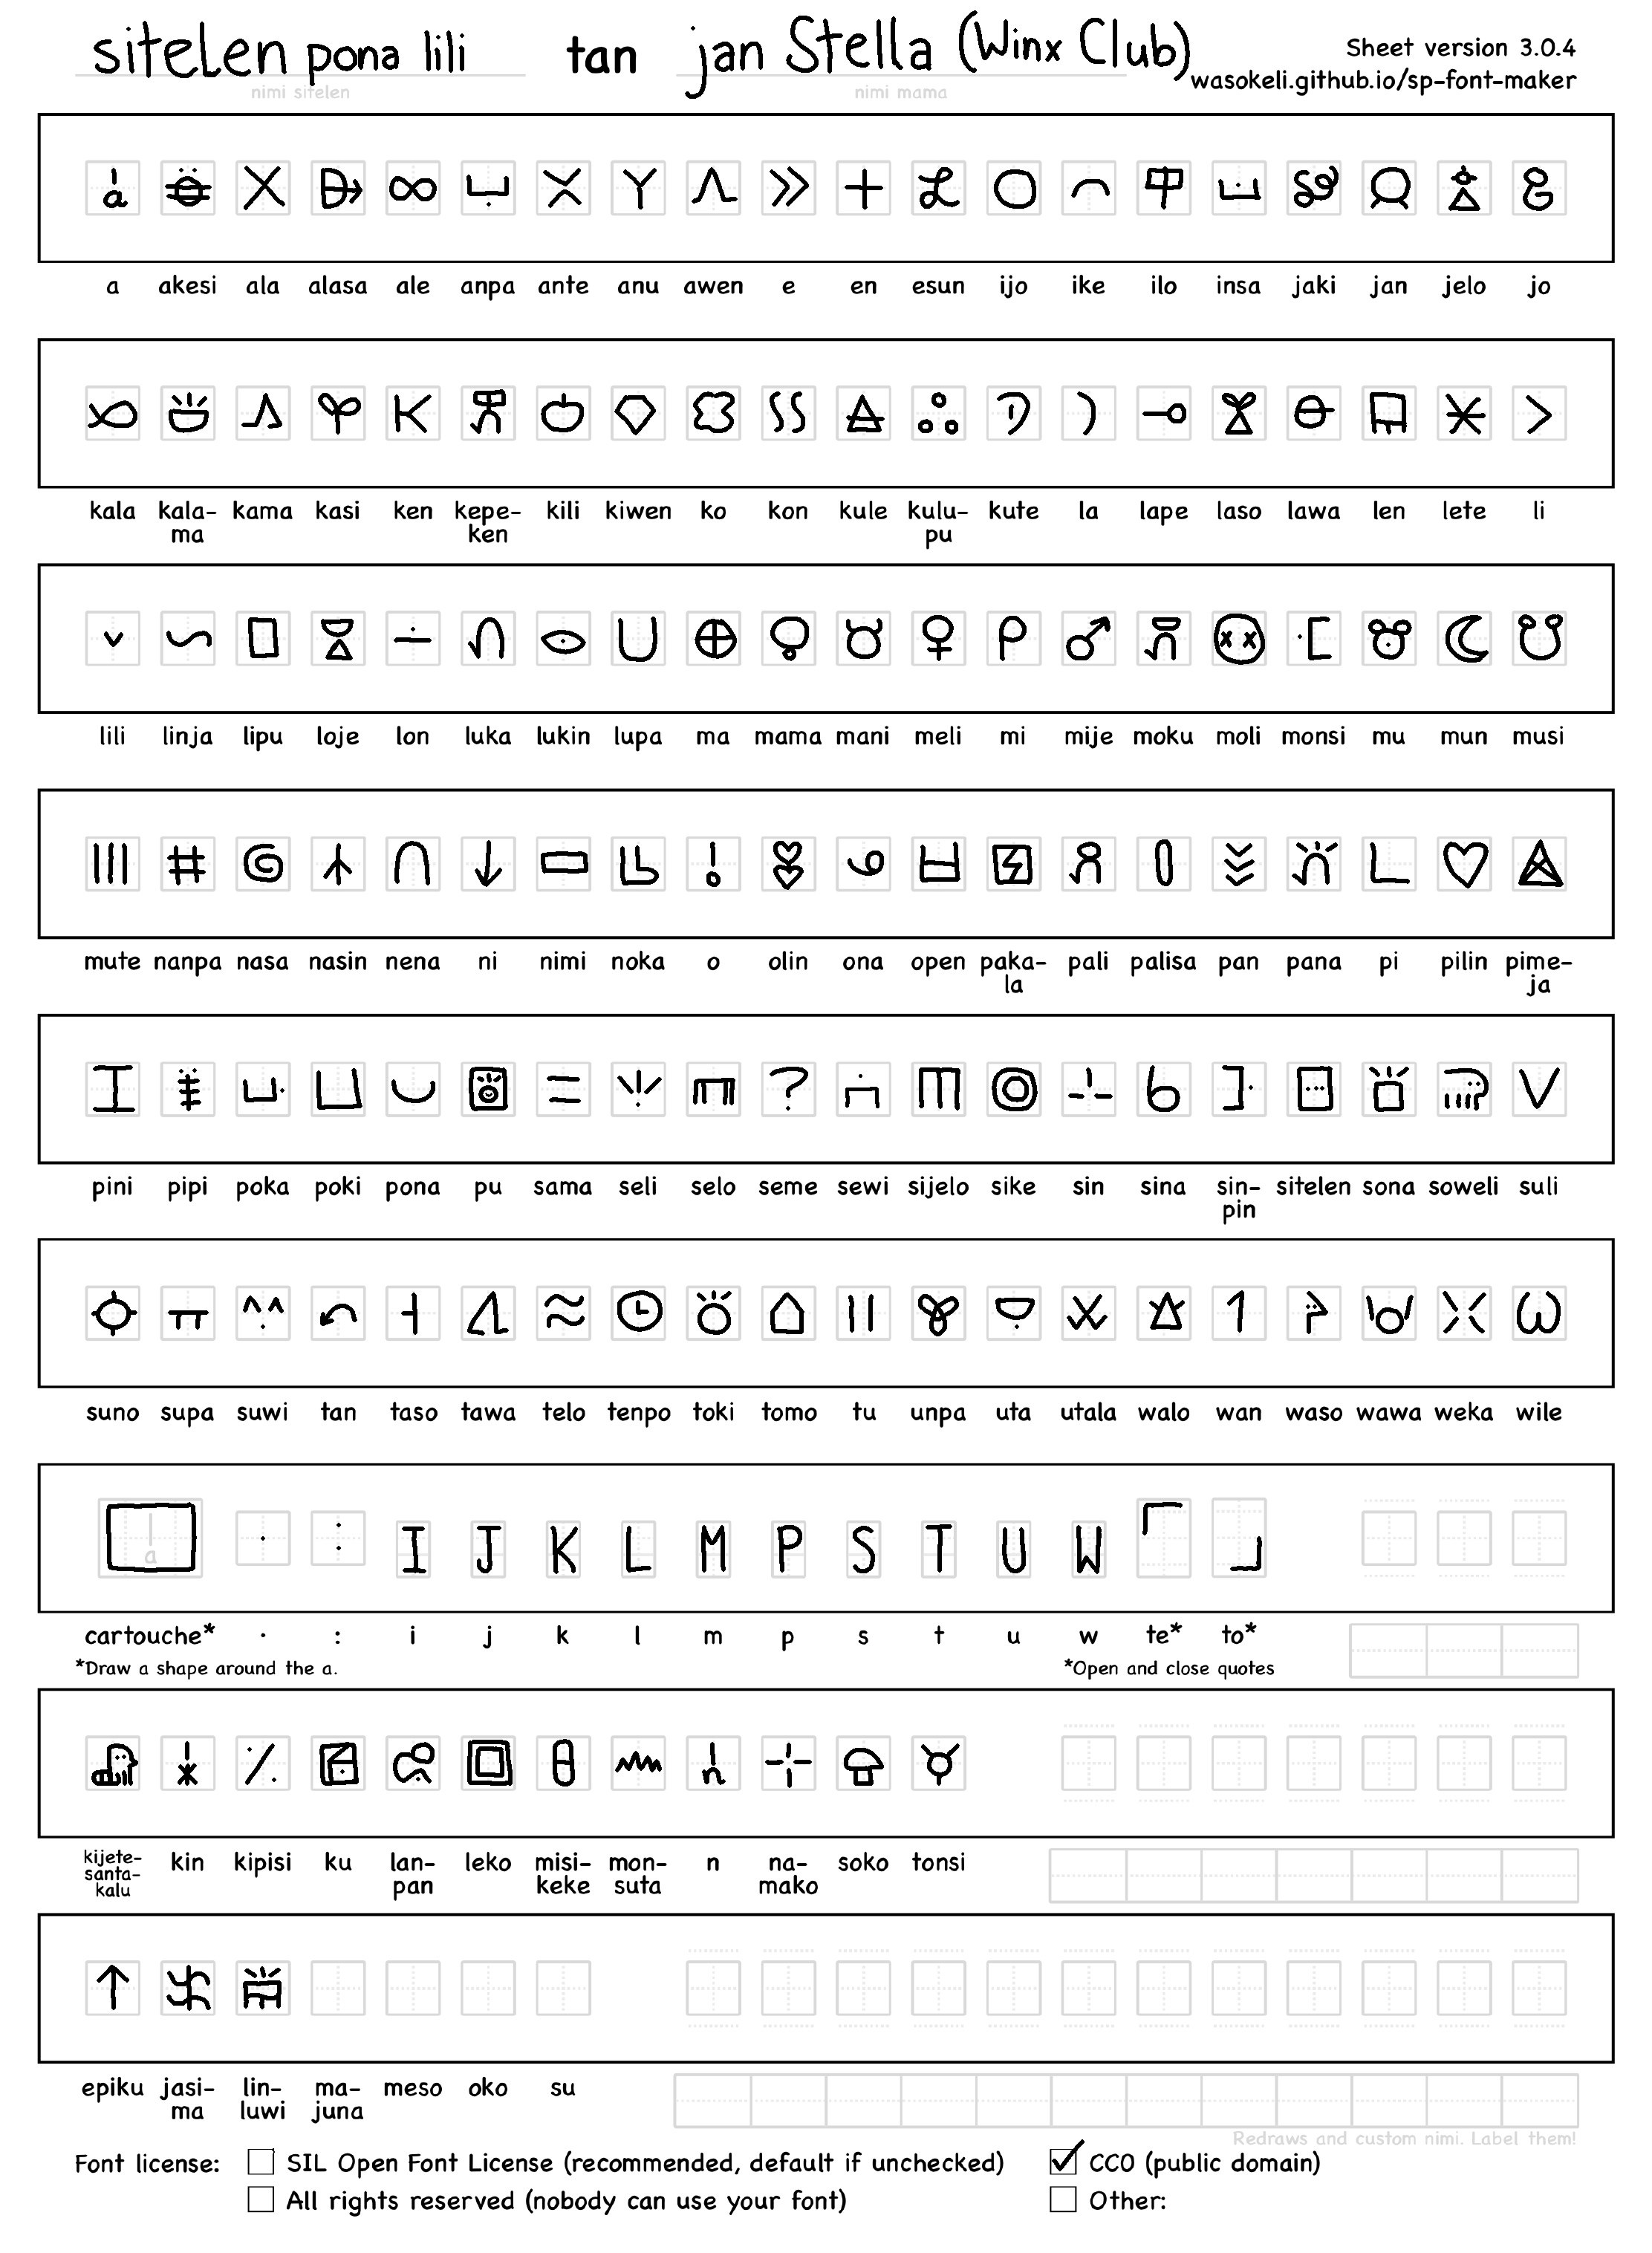 sitelen pona lili tan jan Stella (Winx Club)
nimi sitelen nimi mama
Sheet version 3.0.4
wasokeli.github.io/sp-font-maker
a akesi ala alasa ale anpa ante anu awen e en esun ijo ike ilo insa jaki jan jelo jo
kala kala-ma kama kasi ken kepe-ken kili kiwen ko kon kule kulu-pu kute la lape laso lawa len lete li
lili linja lipu loje lon luka lukin lupa ma mama mani meli mi mije moku moli monsi mu mun musi
mute nanpa nasa nasin nena ni nimi noka o olin ona open paka-la pali palisa pan pana pi pilin pime-ja
pini pipi poka poki pona pu sama seli selo seme sewi sijelo sike sin sina sin-pin sitelen sona soweli suli
suno supa suwi tan taso tawa telo tenpo toki tomo tu unpa uta utala walo wan waso wawa weka wile
a · : I J K L M P S T U W
cartouche* · : i j k l m p s t u w te* to*
*Draw a shape around the a. *Open and close quotes
kijete-santa-kalu kin kipisi ku lan-pan leko misi-keke mon-suta n na-mako soko tonsi
epiku jasi-ma lin-luwi ma-juna meso oko su
Redraws and custom nimi. Label them!
Font license: SIL Open Font License (recommended, default if unchecked) CC0 (public domain)
All rights reserved (nobody can use your font) Other: